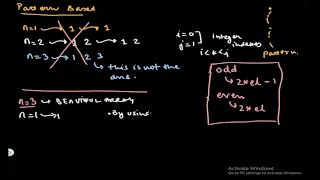 Pattern Based
n=1 → 1
n=2 → 1 2
n=3 → 1 2 3
→ this is not the ans.
i=0
j=1
integer indexes
i<k<j
pattern.
odd
→ 2*el - 1
even
→ 2*el
n=3 → BEAUTIFUL ARRAY
n=1 → 1
• By using
Activate Windows
Go to PC settings to activate Windows.